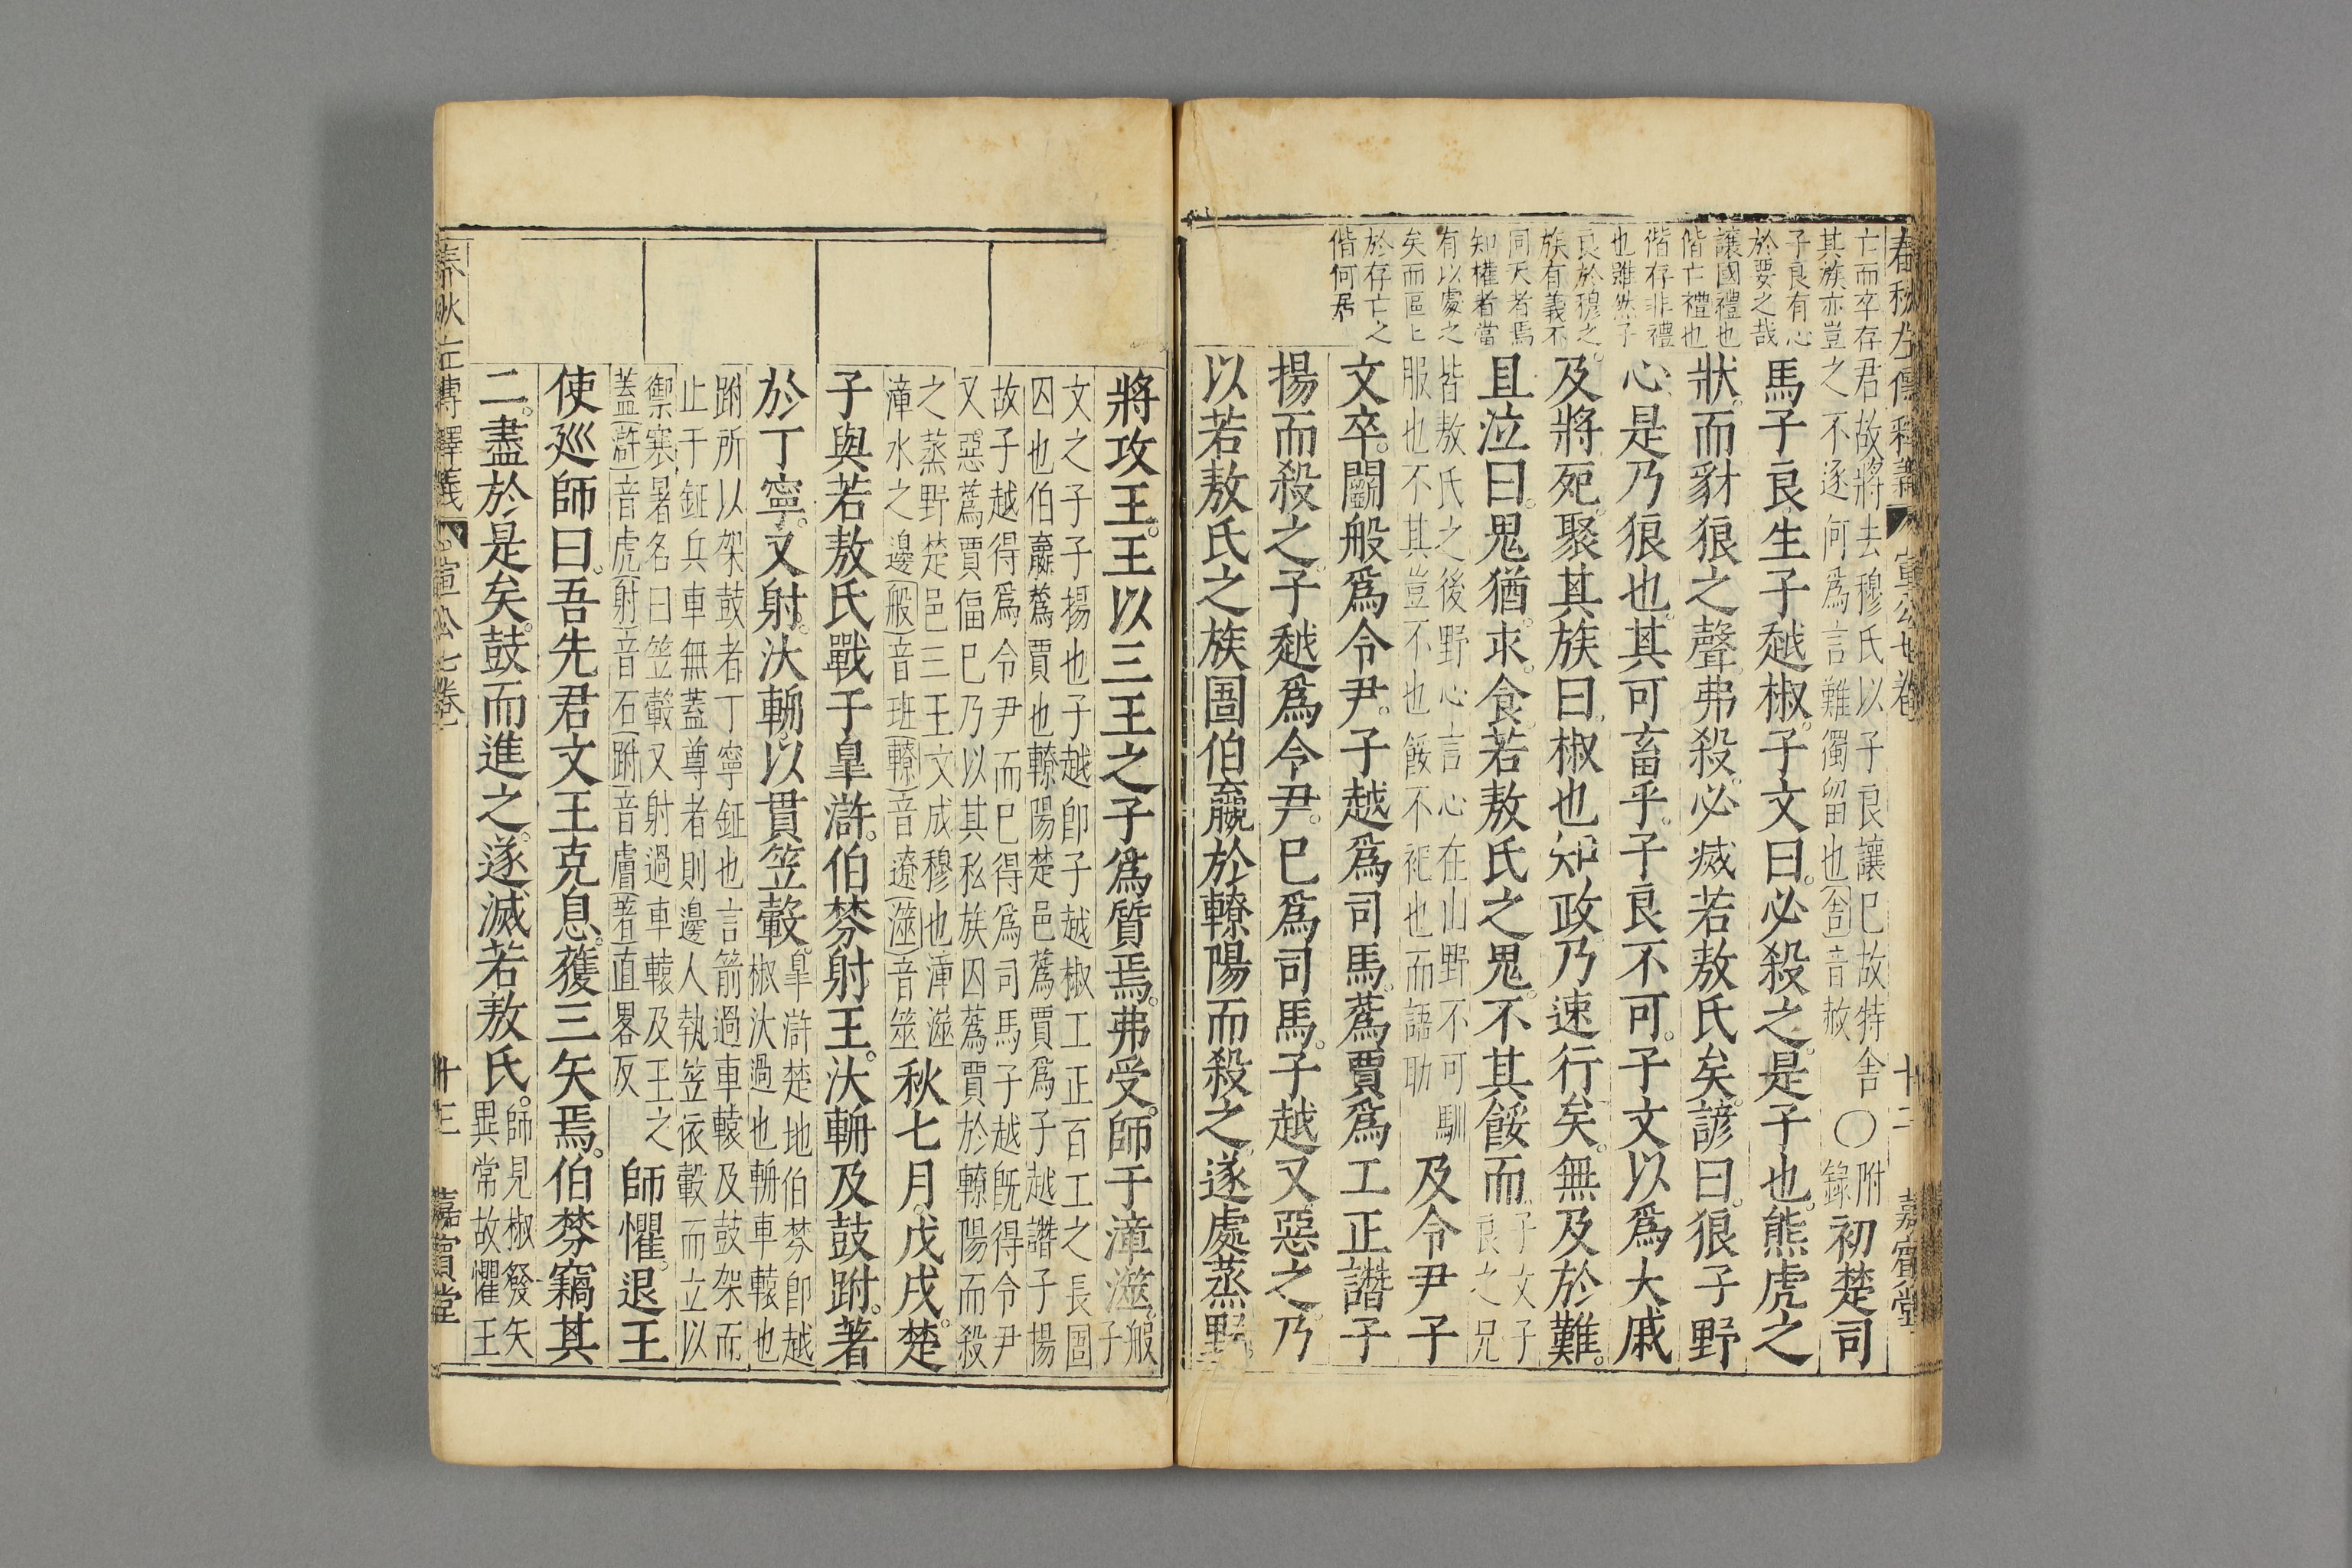 春秋左傳釋義 宣公七卷 十二 嘉賓堂
亡而卒存
其族亦豈
子良有心
於要之哉
讓國禮也
偕亡禮也
偕存非禮
也雖然子
良於穆之
族有義不
同天者焉
知權者當
有以處之
矣而區區
於存亡之
偕何居
君故將去穆氏以子良讓已故特舍
之不逐何爲言難獨留也舍音赦
〇附錄初楚司
馬子良生子越椒。子文曰。必殺之。是子也。熊虎之
狀。而豺狼之聲。弗殺。必滅若敖氏矣。諺曰。狼子野
心。是乃狼也。其可畜乎。子良不可。子文以爲大慼
及將死。聚其族曰。椒也知政。乃速行矣。無及於難。
且泣曰。鬼猶求食。若敖氏之鬼。不其餒而。子文子良之兄
皆敖氏之後野心言心在山野不可馴
服也不其豈不也餒不祀也而語助
及令尹子
文卒。鬭般爲令尹。子越爲司馬。蒍賈爲工正。譖子
揚而殺之。子越爲令尹。已爲司馬。子越又惡之。乃
以若敖氏之族圄伯嬴於轑陽而殺之。遂處蒸野。
將攻王。王以三王之子爲質焉。弗受。師于漳澨。般子
文之子子揚也子越卽子越椒工正百工之長圄
囚也伯嬴蒍賈也轑陽楚邑蒍賈爲子越譖子揚
故子越得爲令尹而已得爲司馬子越旣得令尹
又惡蒍賈偪已乃以其私族囚蒍賈於轑陽而殺
之蒸野楚邑三王文成穆也漳澨
漳水之邊般音班轑音遼澨音筮
秋七月。戊戌。楚
子與若敖氏戰于皐滸。伯棼射王。汏輈及鼓跗。著
於丁寧。又射。汏輈。以貫笠轂。皐滸楚地伯棼卽越
椒汏過也輈車轅也
跗所以架鼓者丁寧鉦也言箭過車轅及鼓架而
止于鉦兵車無蓋尊者則邊人執笠依轂而立以
禦寒暑名曰笠轂又射過車轅及王之
蓋滸音虎射音石跗音膚著直畧反
師懼。退。王
使廵師曰。吾先君文王克息。獲三矢焉。伯棼竊其
二。盡於是矣。鼓而進之。遂滅若敖氏。師見椒發矢
異常故懼王
春秋左傳釋義 宣公七卷 十三 嘉賓堂